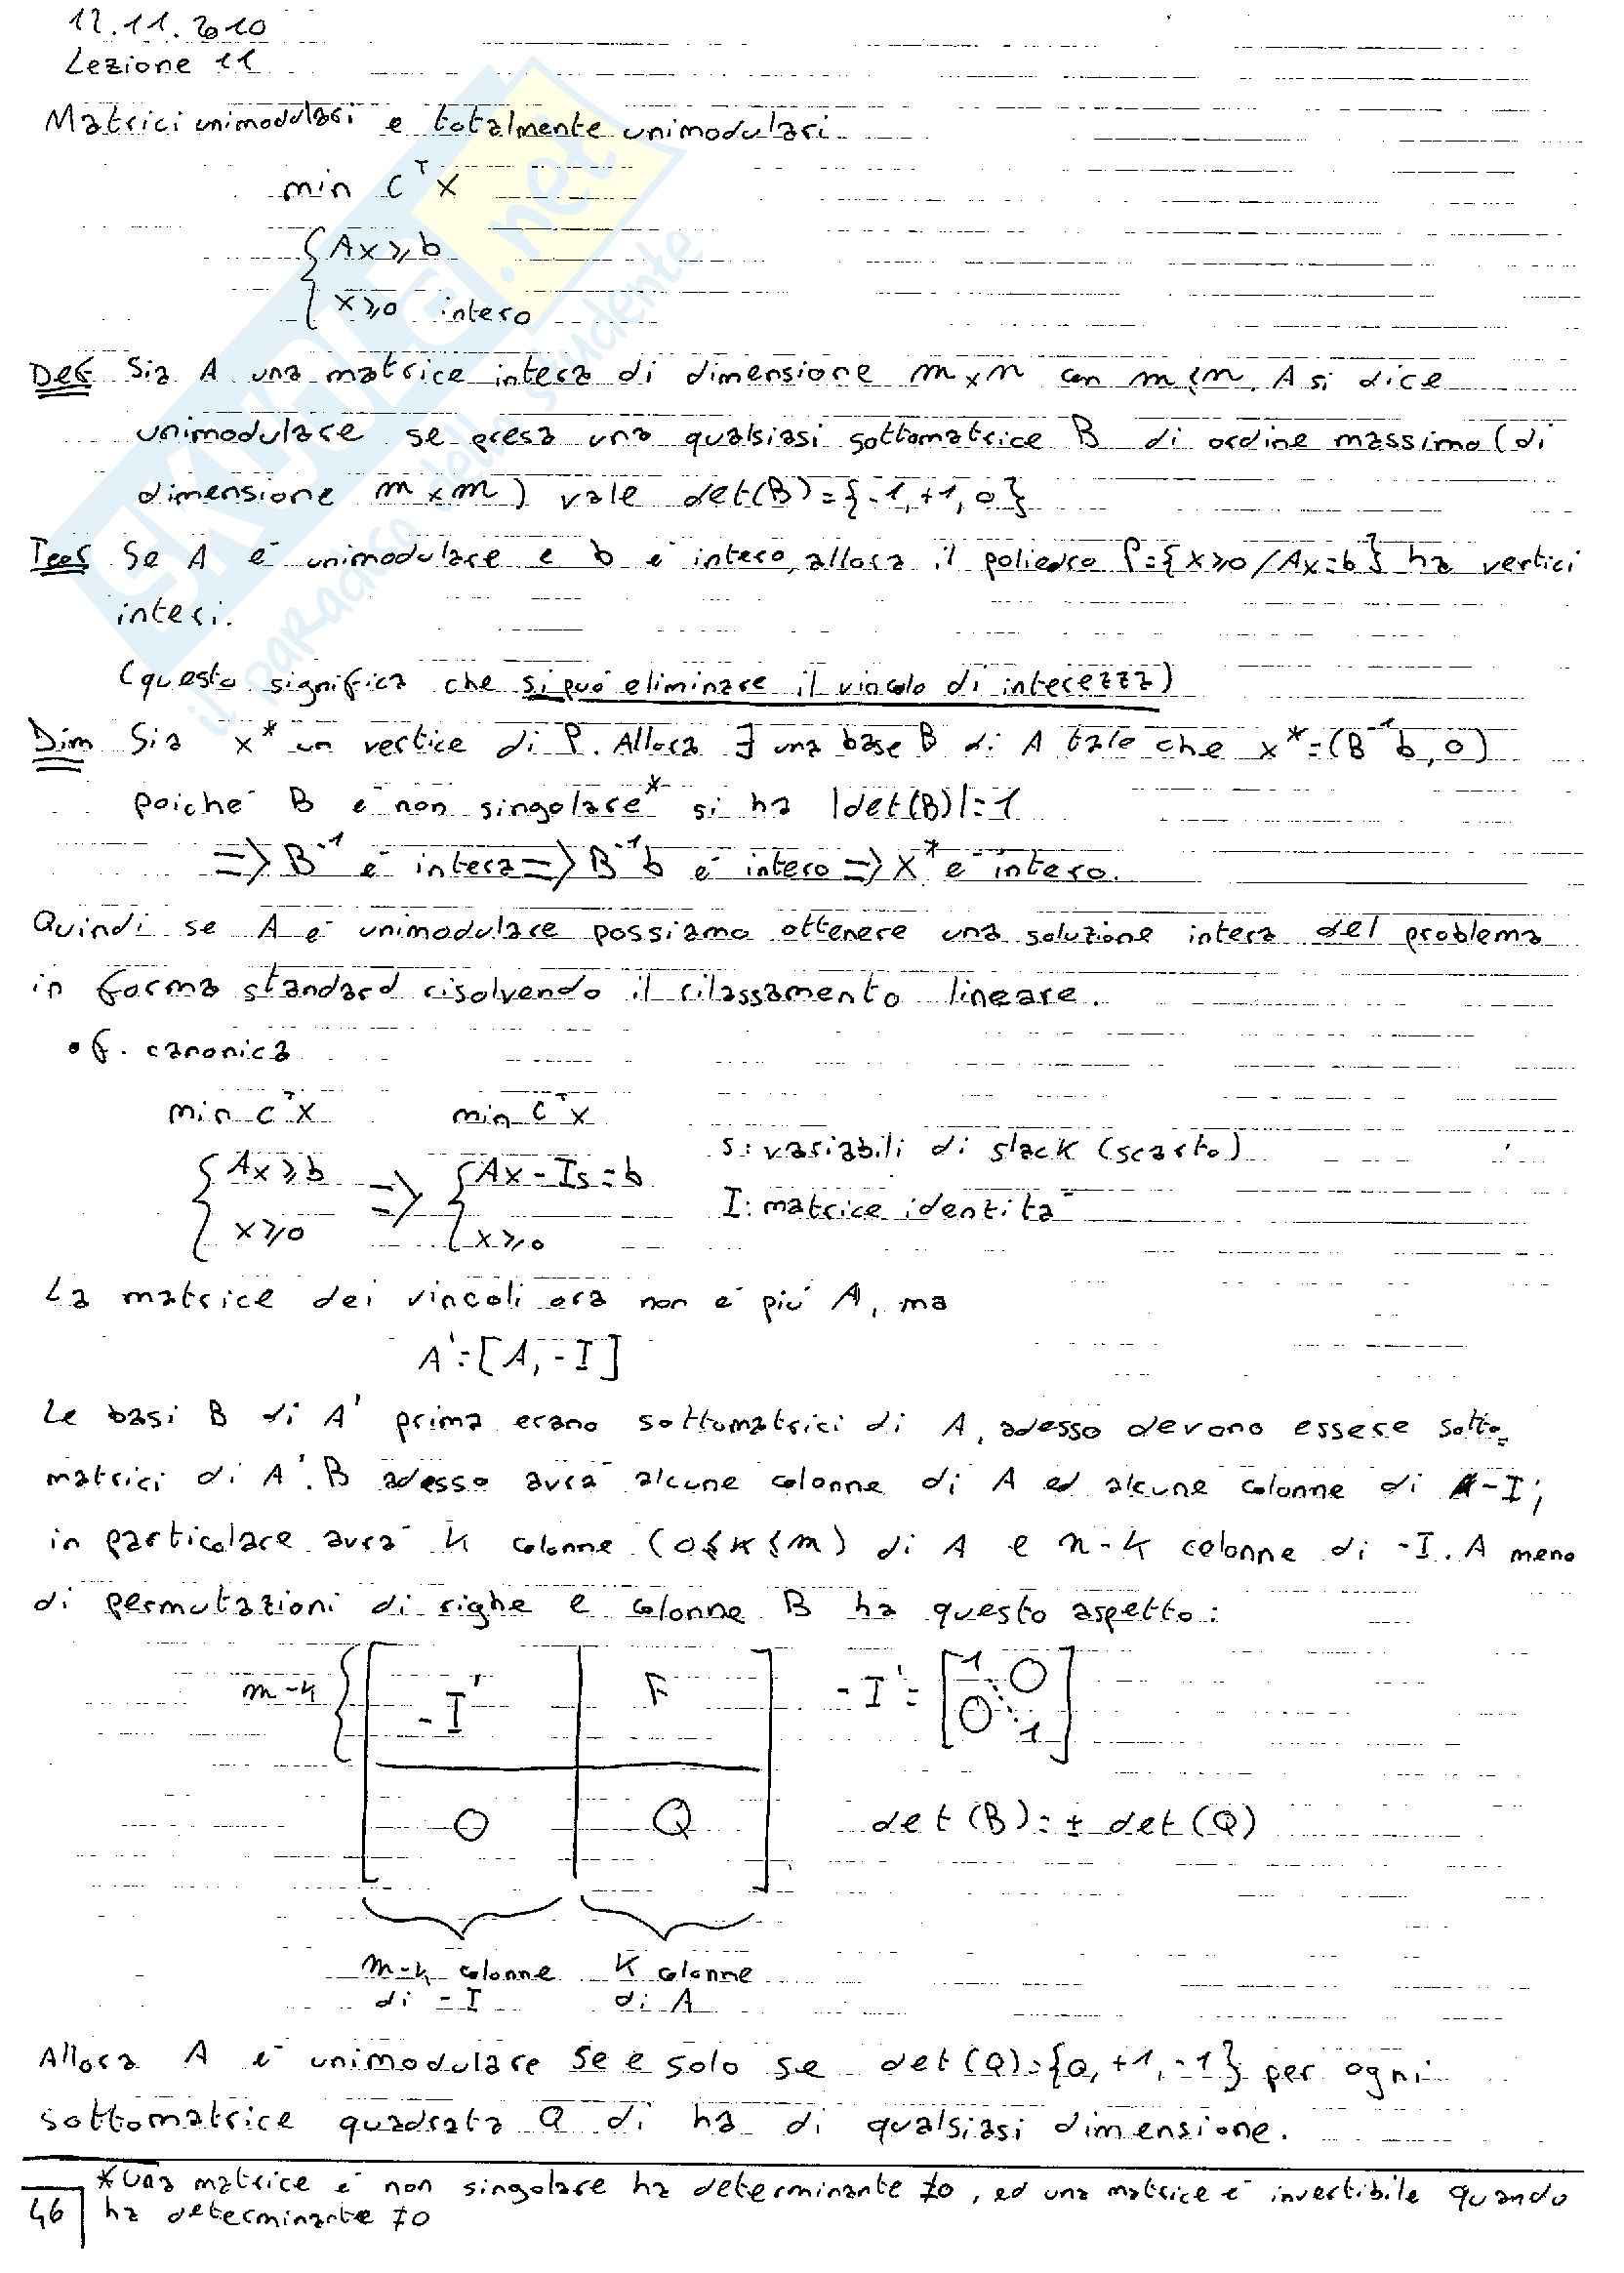 12.11.2010
Lezione 11
Matrici unimodulari e totalmente unimodulari
min cᵀx
{Ax≥b
{x≥0 intero
Def Sia A una matrice intera di dimensione m×n con m≤n. A si dice
unimodulare se presa una qualsiasi sottomatrice B di ordine massimo (di
dimensione m×m) vale det(B)={-1,+1,0}
Teor Se A è unimodulare e b è intero, allora il poliedro P={x≥0/Ax=b} ha vertici
interi.
(questo significa che si può eliminare il vincolo di interezza)
Dim Sia x* un vertice di P. Allora ∃ una base B di A tale che x*=(B⁻¹b,0)
poiché B è non singolare* si ha |det(B)|=1
=> B⁻¹ è intera => B⁻¹b è intero => x* è intero.
Quindi se A è unimodulare possiamo ottenere una soluzione intera del problema
in forma standard risolvendo il rilassamento lineare.
• f. canonica
min cᵀx min cᵀx
{Ax≥b => {Ax-Is=b s: variabili di slack (scarto)
{x≥0 {x≥0 I: matrice identità
La matrice dei vincoli ora non è più A, ma
A'=[A,-I]
Le basi B di A' prima erano sottomatrici di A, adesso devono essere sotto=
matrici di A'. B adesso avrà alcune colonne di A ed alcune colonne di -I;
in particolare avrà k colonne (0≤k≤m) di A e n-k colonne di -I. A meno
di permutazioni di righe e colonne B ha questo aspetto:
m-k -I' F -I'=[1 0 0 1]
0 Q det(B)=± det(Q)
m-k colonne k colonne
di -I di A
Allora A è unimodulare se e solo se det(Q)={0,+1,-1} per ogni
sottomatrice quadrata Q di ha di qualsiasi dimensione.
*Una matrice è non singolare ha determinante ≠0, ed una matrice è invertibile quando
46 ha determinante ≠0
EXAMPLE